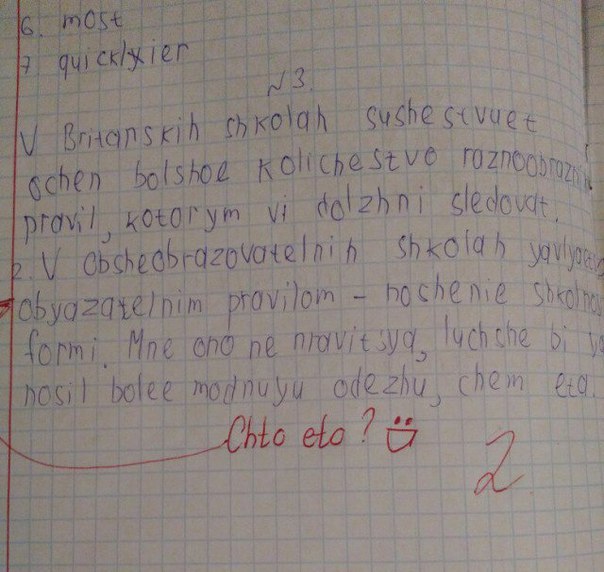 6. most
7 quicklyier
№3.
V Britanskih shkolah sushestvuet
ochen bolshoe kolichestvo raznoobraznih
pravil, kotorym vi dolzhni sledovat.
2. V obsheobrazovatelnih shkolah yavlyaetsa
obyazatelnim pravilom – noshenie shkolnoy
formi. Mne ono ne nravitsya, luchshe bi ya
nosil bolee modnuyu odezhu, chem eta.
Chto eto?
2